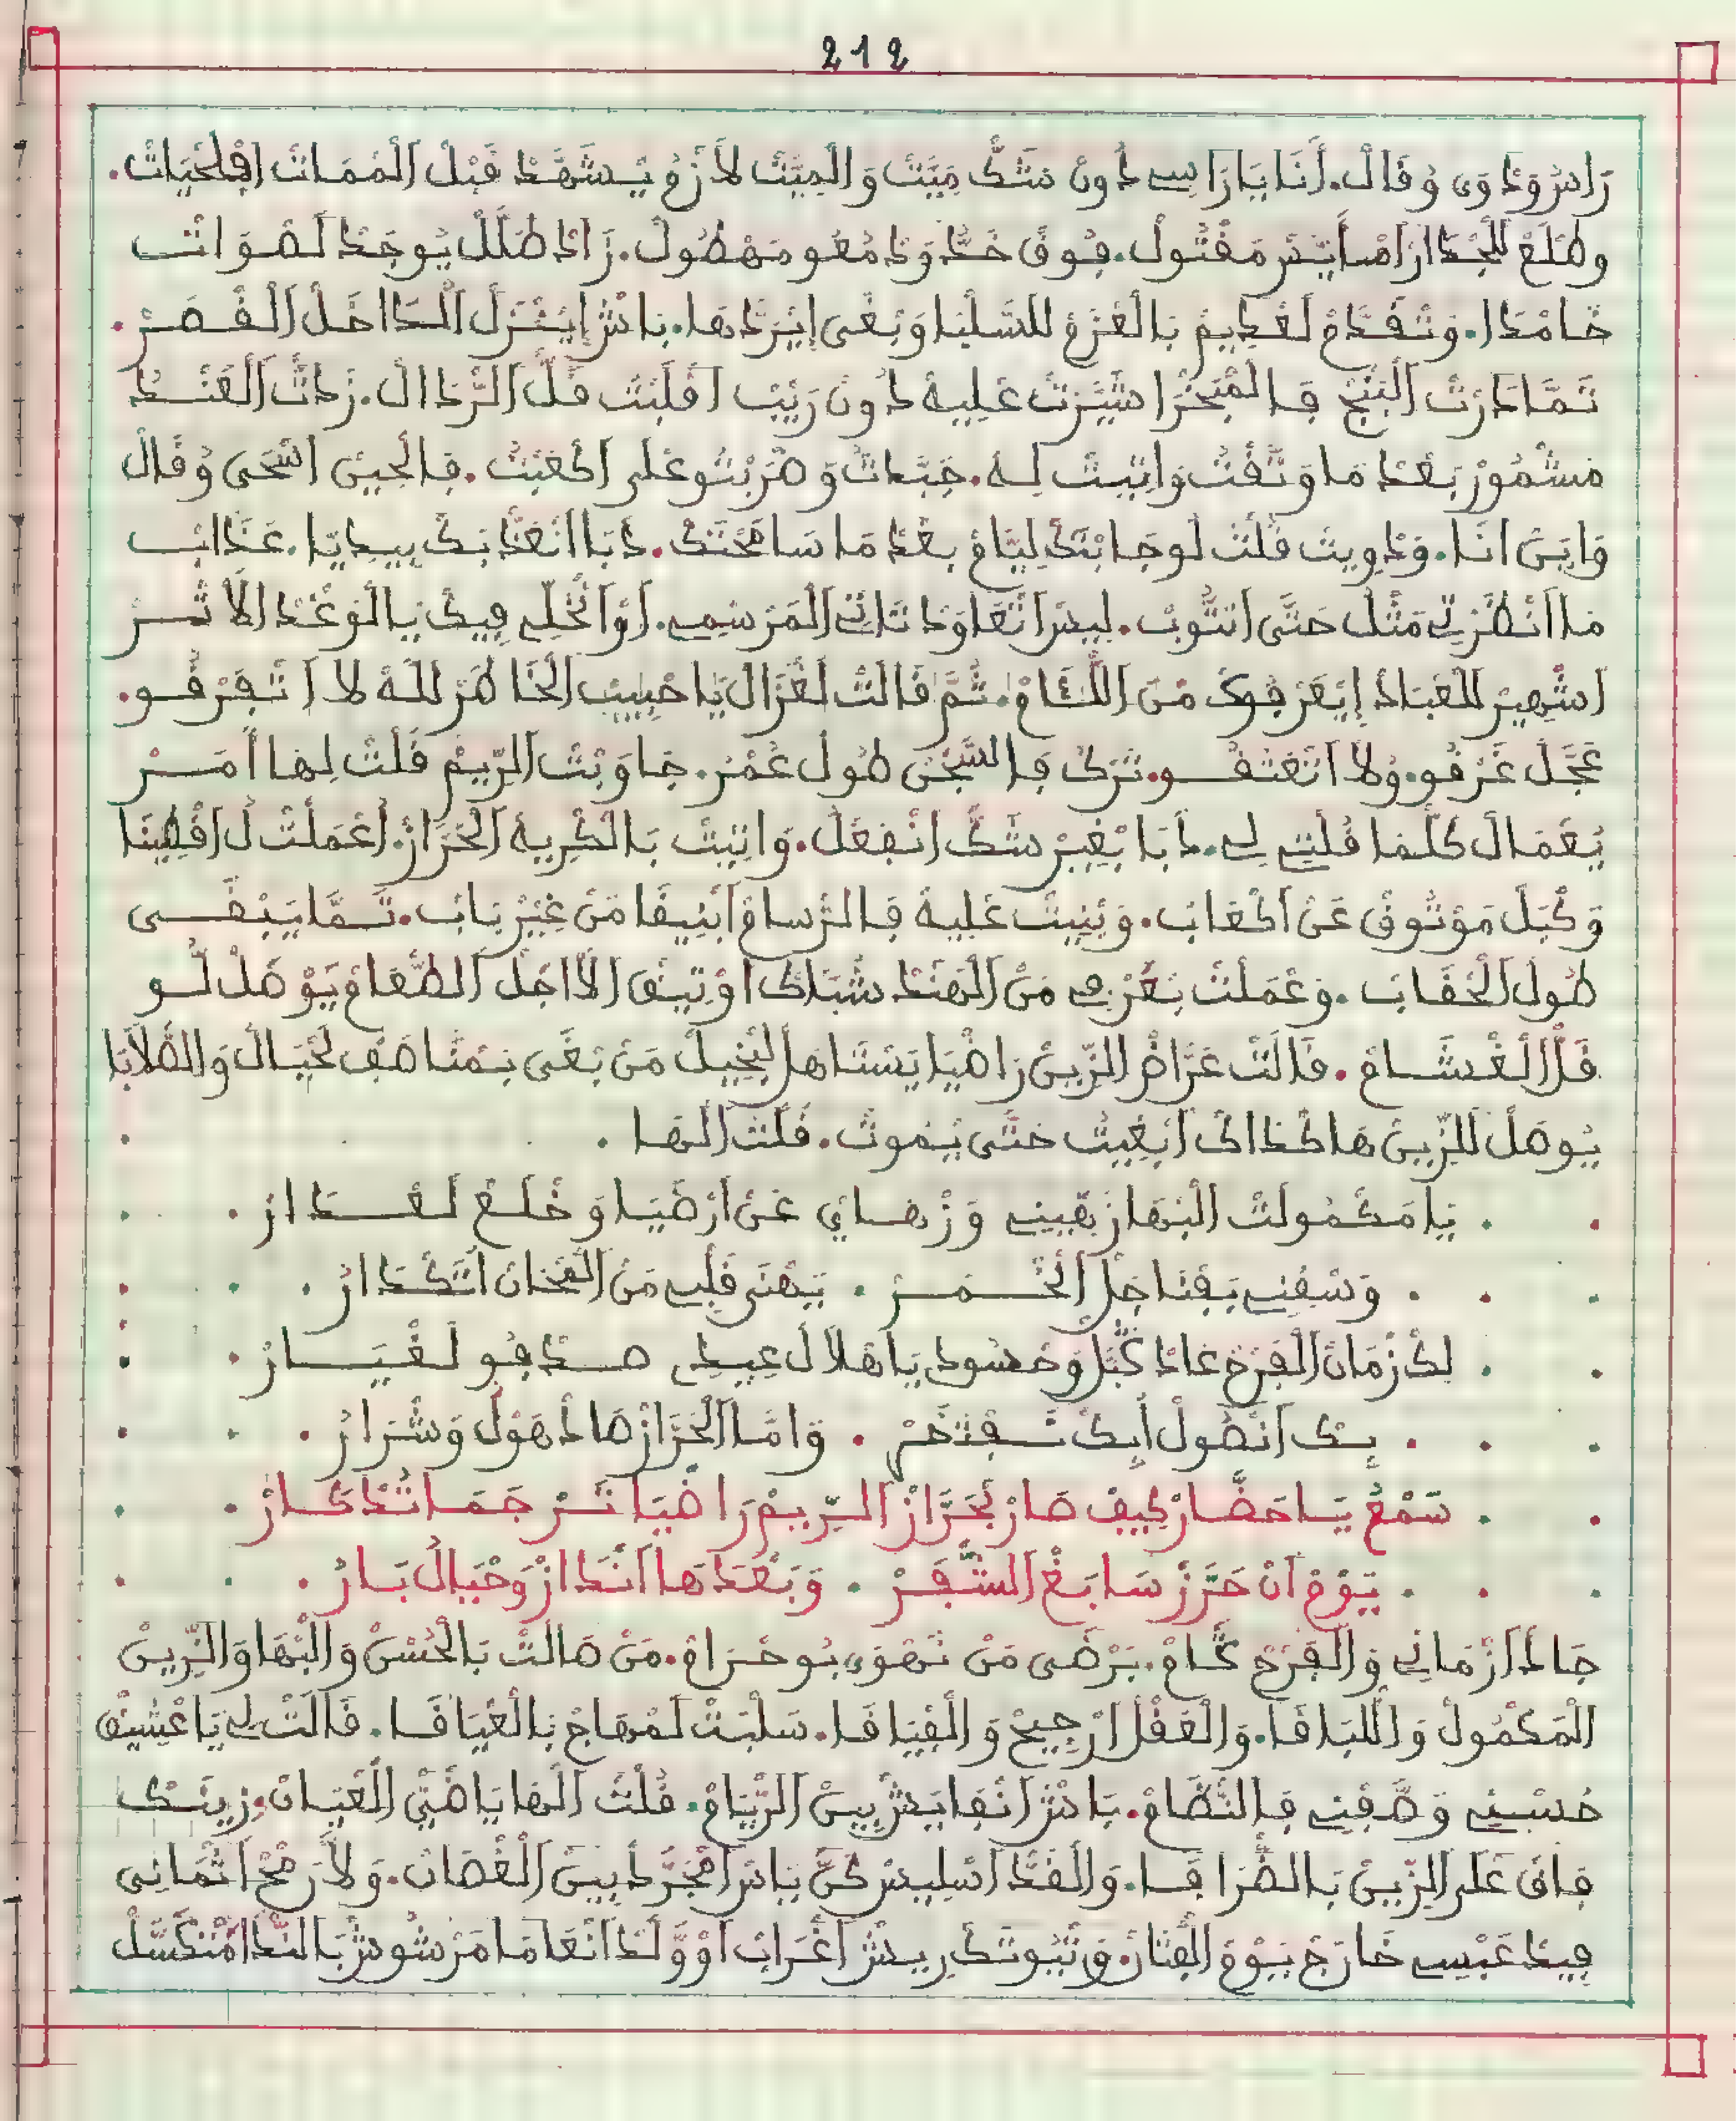 212
رَاسُ وَدْوَى وُ قَالْ. أَنَا يَا رَاسِي دُونْ شَكّْ مِيَّتْ وَ الْمِيَّتْ لَازَمْ يَشَّهَّدْ قَبْلْ الْمَمَاتْ افِلَحْيَاتْ.
وطْلَعْ لَلْجْدَارْ امْسَايَسْ مَقْتُولْ. فُوقْ خَدُّ وَدْمُعُو مَهْطُولْ. زَادْ طَلَّلْ يُوجَدْ لَصْوَاتْ
خَامْدَا. وَتْقَدَّمْ لَغْدِيمْ بَالْعَزْمْ لَلسَّلْبَا وَبْغَى إيْرَدْهَا. بَاشْ إيَنْزَلْ الْدَاخَلْ الْقْصَرْ.
تَمَّا دَارَتْ الْبَنْجْ فَالْمْبَخْرَا شَيَّرْتْ عَلِيهْ دُونْ رَيْبْ اقْلَبْتْ قَلّْ الرَّدَالْ. زَدْتْ الْقَنْدْ
مَشْمُورْ بَعْدْ مَا وَتَّقْتْ وَاتِيتْ لِهْ. جَبْدَاتُ وَ ضْرَبْتُو عْلَى الْكَعْبْتْ. فَالْحِينْ اتْحَى وُ قَالْ
وَايَنْ انَا. وَدْوِيتْ قَلْتْ لُو جَابْتَكْ لِيَّامْ بَعْدْ مَا سَامْحَتَكْ. دَابَا انْعَدّْبَكْ بِيدِيَّا. عَذَابْ
مَا انْطَرْ لِي مَثْلُ حَتَّى اتُّوبْ. لِيسْ اتْعَاوَدْ تَانِي الْمَرْسْمِي. اوْ انْخَلِّي فِيكْ يَا الْوَغْدْ الَاثَرْ
اشْهِيرْ لَلْعْبَادْ إيْعَرْفُوكْ مَنْ اللَّثَامْ. ثُمَّ قَالَتْ لَغْزَالْ يَا حْبِيبْ الْخَاطَرْ لَلَّهْ لَا اتْفَرْقُو.
عَجَّلْ غَرْقُو. وُلَا اتْعَتْقُو. تَرْكُ فَالسّْجَنْ طُولْ عُمْرُ. جَاوَبْتْ الرِّيمْ قَلْتْ لِهَا أَمَرْ
يُعْمَالْ كَلّْمَا قُلْتِي لِي. دَابَا بْغِيرْ شَكّْ انْفَعْلُ. وَاتِيتْ بَالْكْرِيهْ الْحَرَّازْ. اعْمَلْتْ لُ اقْلِينَا
وَكْبَلْ مَوْتُوقْ عَنْ الْكْعَابْ. وَبْنِيتْ عْلِيهْ فَالرْسَامْ ابْنِيقَا مَنْ غِيْرْ بَابْ. تَمَّا يَبْقَى
طُولْ الْحْقَابْ. وَعْمَلْتْ بَعْرْفِي مَنْ الْهَنْدْ شَبَّاكْ اوْتِيقْ الَّا اجَلْ الطّْعَامْ يَوْصَلْ لُو
قَلّْ الْغْشَامْ. قَالَتْ عَرَّاضْ الزِّينْ رَاضْيَا يَسْتَاهَلْ لَبْخِيلْ مَنْ بْغَى يَمْنَا صَيْفْ لَخْيَالْ وَالطَّلَابَا
يُوصَلْ لَلزِّينْ هَاكْدَاكْ ابْغِيتْ حَتَّى يَمُوتْ. قَلْتْ الْهَا.
يَا مَكْمُولَتْ الْبْهَا زْهِينِي وَزْهَايْ عَنْ ارْضْيَا وَ خْلَعْ لَعْدَارْ.
وَسْقِنِي يَفْنَاجَلْ الْخْمَرْ. يَهْنَى قَلْبِي مَنْ الْمْحَانْ اتّْكْدَارْ.
لِكْ زْمَانْ الْفَرْحْ عَادْ كَبَّلْ وَحْسُودِي يَا هْلَالْ عِيدِي صَدْفُو لَغْيَارْ.
بِكْ انْصُولْ ابِكْ نَفْتْخَرْ. وَامَّا الْحَرَّازْ هَا دْهَوْلْ وَشْرَارْ.
سَمْعُ يَا حَضَّارْ كِيفْ صَارْ لَحْرَّازْ الرِّيمْ رَاضْيَا تَرْجَمَا تُدْكَارْ.
يَوْمْ انْ حَرَزْ سَابَغْ الشّْفَرْ. وَبْعَدْهَا انْدَارْ وَحْيَالْ بَارْ.
جَادْ ازْمَانِي وَالْفَرْحْ كَامْ. بَرْضَى مَنْ نَهْوَى بُو حْرَامْ. مَنْ صَالَتْ بَالْحُسْنْ وَالْبْهَا وَالزِّينْ
الْمَكْمُولْ وَاللّْبَاقَا. وَالْعَقْلْ ارْجِيحْ وَالْفِيَاقَا. سَلْبَتْ لَمْهَاجْ بَالْعْيَاقَا. قَالَتْ لِي يَا عْشِيقْ
حُسْنِي وَصَّفْنِي فَالنّْظَامْ. بَاشْ انْفَايَشْ بِينْ الرّْيَامْ. قُلْتْ الْهَا يَا ضَيّْ الْعْيَانْ. زِينَكْ
فَاقْ عَلَى الزِّينْ بَالظْرَافَا. وَالْقَدّْ اسْلِيسْ كَنّْ يَاسْ امْجَرَّدْ بِينْ الْغْصَانْ. وَلَا رَمْحْ اثْمَانِي
فِيدْ عَبْسِي خَارَجْ يَوْمْ الْفْتَانْ. وَتْيُوتَكْ رِيشْ اغْرَابْ اوْ وَلْدْ انْعَامَا مَرْشُوشْ بَالنّْدَا امْتْكَسَّلْ